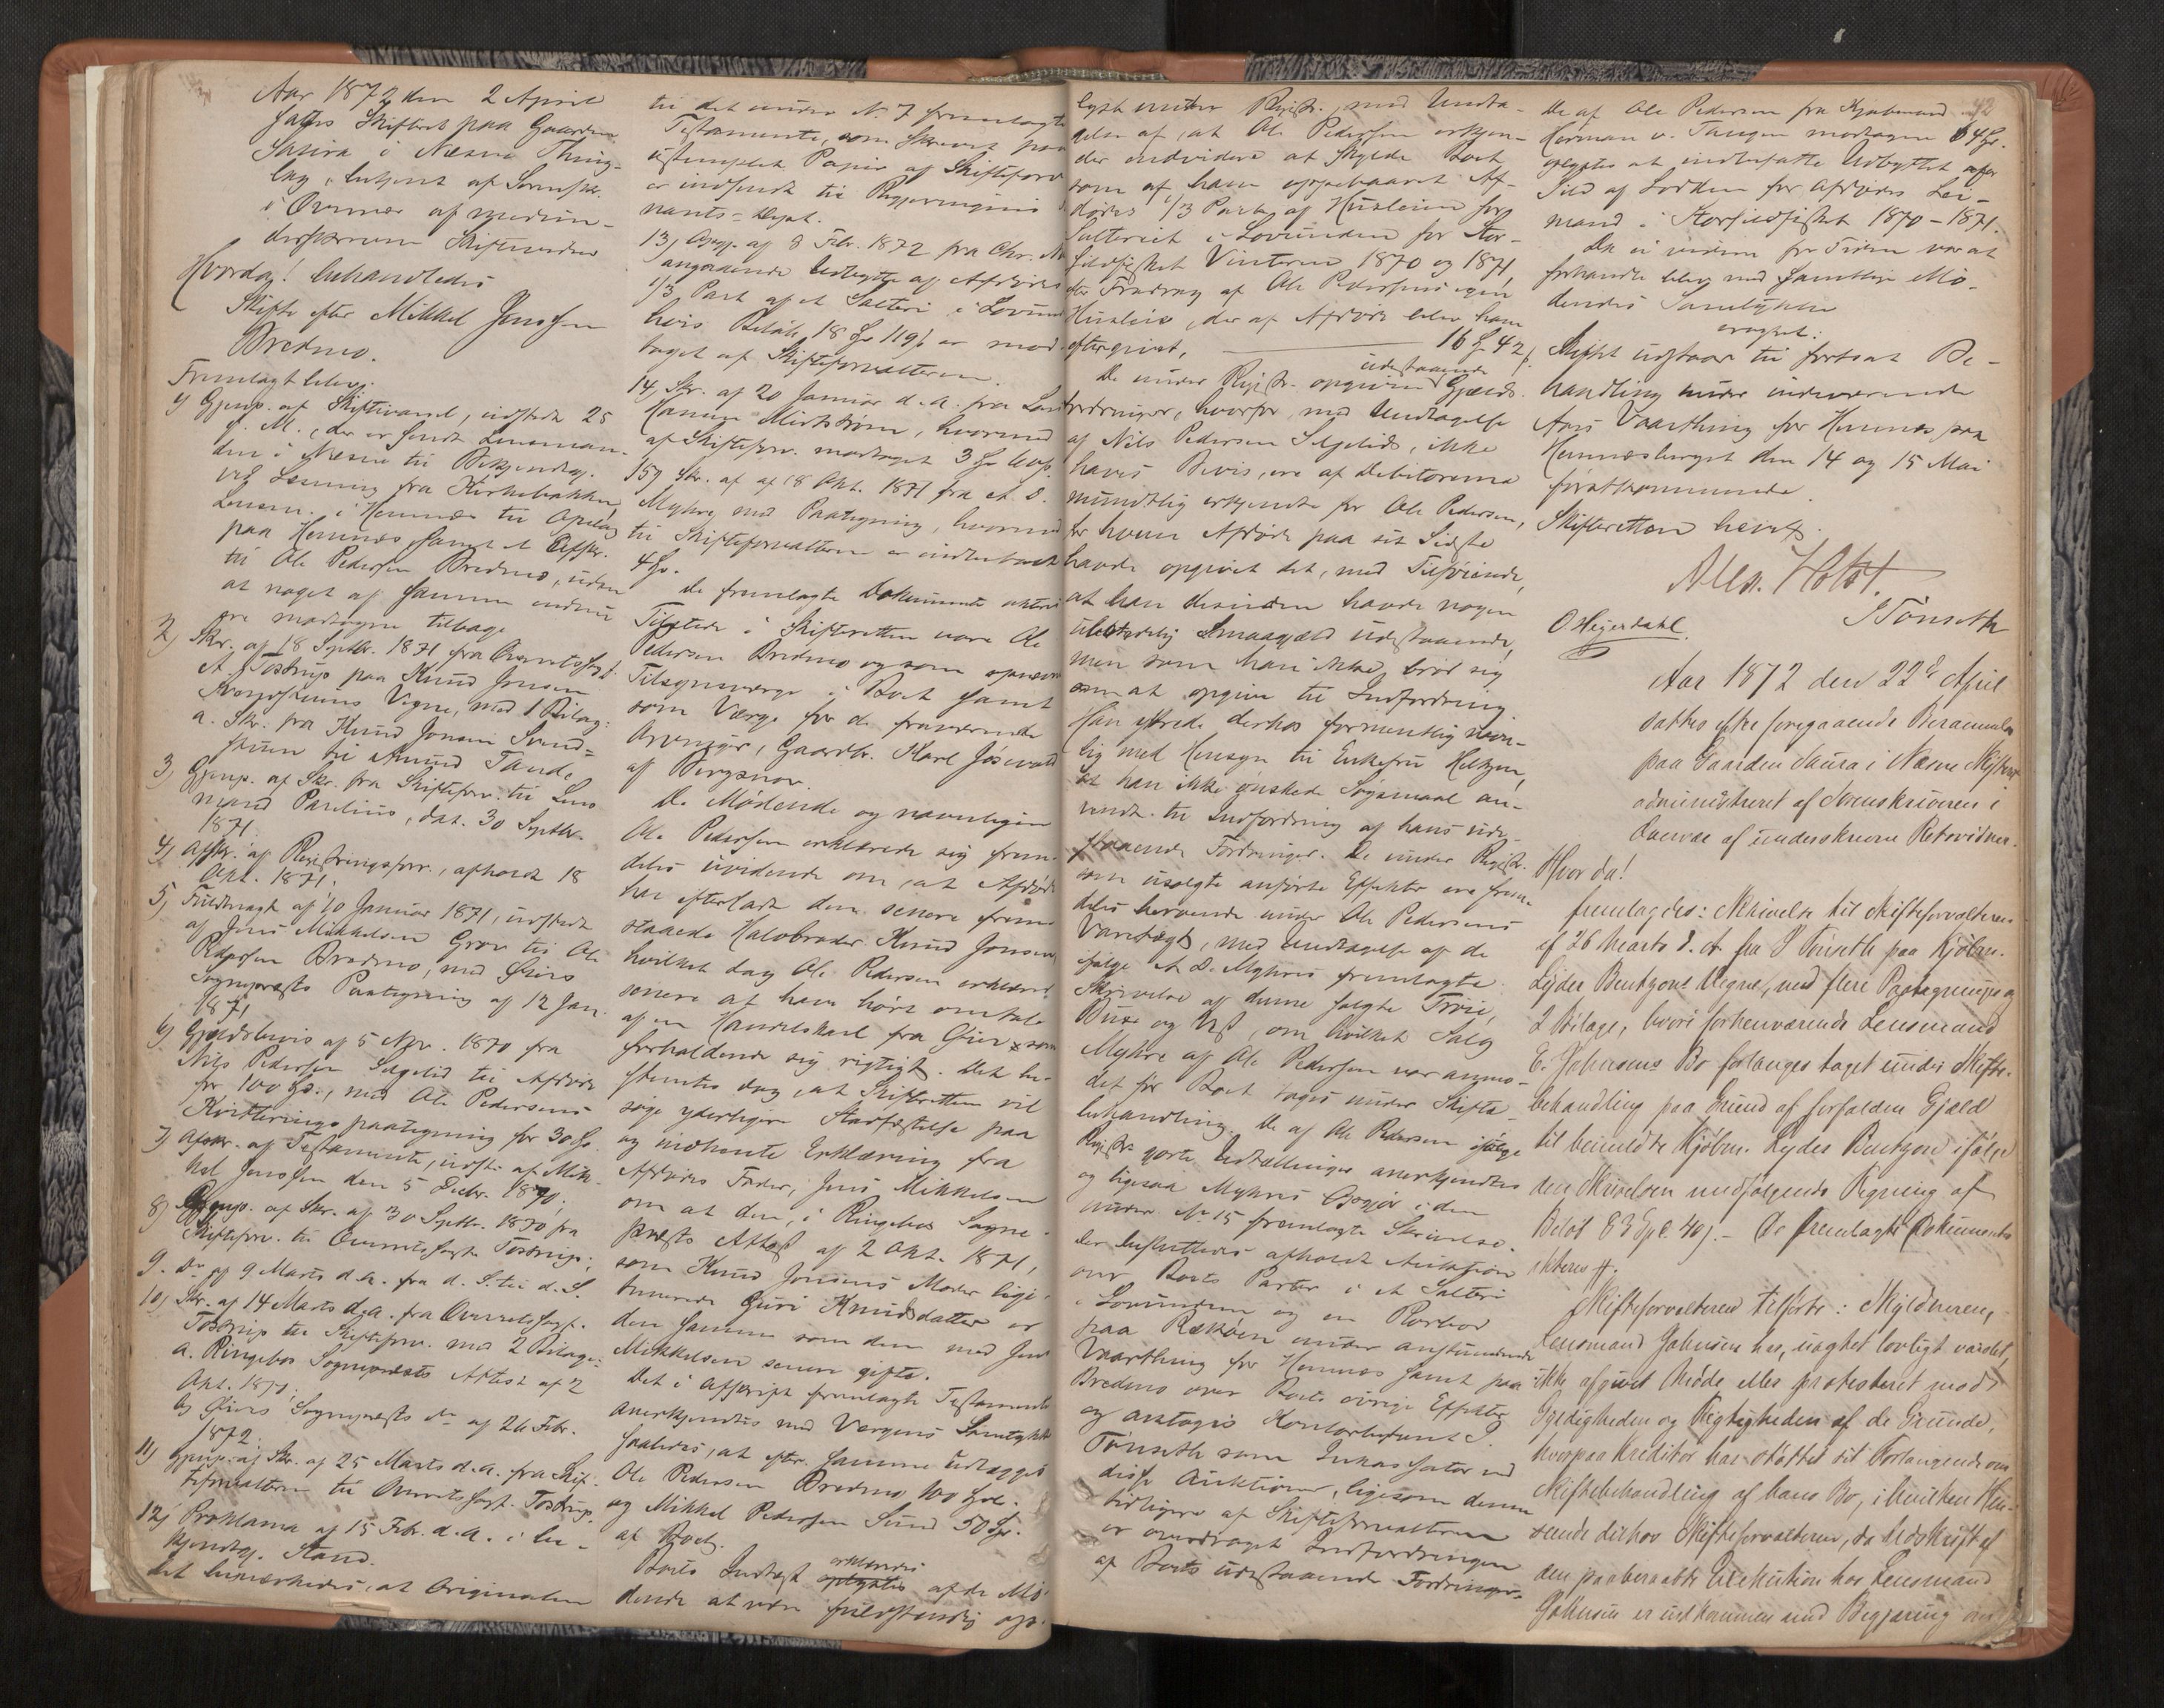 Aar 1872 den 2 April
sattes Skifteret paa Gaarden
Saura i Næsne Thing-
lag, betjent af Sorenskr.
i Overvær af meddom-
Hvorda! behandledes
Skifte efter Mikkel Jenssen
Bredmo.
Fremlagt blev:
1) Gjenp. af Skiftevarsel, udstedt 25
f. M., der er sendt Lensman-
den i Næsne til Bekjendtg.
ved Læsning fra Kirkebakken,
Lensm. i Hemnæs til Opslag
paa Hemnæs, samt et Exspl.
til Ole Pedersen Bredmo, uden
at noget af samme endnu
ere modtagne tilbage
2) Skr. af 18 Septbr. 1871 fra Overretssagf.
A. Tostrup paa Knud Jensen
Vegne, med 1 Bilag:
a. Skr. fra Knud Jonsen
til Amund Tande
3) Gjenp. af Skr. fra Skifteforv. til Lens-
mand Parelius, dat. 30 Septbr.
1871.
4) Afskr. af Registreringsforr., afholdt 18
Okt. 1871.
5) Fuldmagt af 10 Januar 1871, udstedt
af Jens Mikkelsen Grov til Ole
Pedersen Bredmo, med Øiers
Sognepræsts Paategning af 12 Jan.
1871
6) Gjældsbevis af 5 Nov. 1870 fra
Nils Pedersen Selgelid til Afdøde
for 100 Spd., med Ole Pedersens
Kvitteringspaategning for 30 Sp.
7) Afskr. af Testamente, udst. af Mik-
kel Jenssen den 5 Decbr. 1870;
8) Gjenp. af Skr. af 30 Septbr. 1870 fra
Skifteforv. til Overretssagf. Tostrup;
9. Do af 9 Marts d.A. fra d. S. til d. S.
10) Skr. af 14 Marts d.A. fra Overretssagf.
Tostrup til Skifteforv. med 2 Bilage:
a. Ringebos Sognepræsts Attest af 2
Okt. 1871.
b) Øiers Sognepræsts do af 26 Febr.
1872.
11) Gjenp. af Skr. af 25 Marts d.A. fra Skif-
teforvalteren til Overretssagf. Tostrup.
12) Proklama af 15 Febr. d.A. i be-
kjendtg. Stand.
Det bemærkedes, at Originalen
til det under No 7 fremlagte
Testamente, som skrevet paa
ustemplet Papir af Skifteforv.
er indsendt til Regjeringens
nants-Dept.
13) Opg. af 8 Febr. 1872 fra Chr.
angaaende Udbytte af Afdødes
1/3 Part af et Salteri i Lovund
hvis Beløb, 18 Sp 119 ß er mod-
taget af Skifteforvalteren.
14) Skr. af 20 Januar d.A. fra
Hansen Midtstrøm, hvormed
af Skifteforv. modtaget 3 Sp
15) Skr. af 18 Okt. 1871 fra A. D.
Myhre, med Paategning, hvormed
til Skifteforvalteren er indbetalt
4 Sp.
De fremlagte Dokumenter
Tilstede i Skifteretten vare Ole
Pedersen Bredmo og som opnævnt
Tilsynsværge i Boet samt
som Værge for de fraværende
Arvinger, Gaardbr. Karl Jósevold
af Bergsnov.
De Mødende og navnligen
Ole Pedersen erklærede sig frem-
deles uvidende om, at Afdøde
har efterladt den senere frem-
staaede Halvbroder Knud Jonsen,
hvilket dog Ole Pedersen erklæred
senere at have hørt omtale
af en Handelskarl fra Øier som
forholdende sig rigtigt. Det be-
stemtes dog, at Skifteretten vil
søge yderligere Stadfæstelse paa
og indhente Erklæring fra
Afdødes Fader, Jens Mikkelsen
om at den, i Ringebos Sogne-
præsts Attest af 2 Okt. 1871,
som Knud Jonsens Moder
Guri Knudsdatter er
den samme som den med Jens
Mikkelsen senere gifte.
Det i Afskrift fremlagte Testamente
anerkjendtes med Værgens Samtykke
saaledes, at efter samme udlægges
Ole Pedersen Bredmo 100 Spd.
og Mikkel Pedersen Sund 50 Sp.
af Boet.
Boets Indtægt erklæredes af de Mø-
dende at være fuldstændig op-
lyst under Registr., med Undta-
gelse af, at Ole Pedersen erkjen-
der endvidere at skylde Boet
som af ham oppebaaret Af-
dødes 1/3 Part af Husleien for
Salteriet i Lovunden for Stor-
sildfisket Vinteren 1870 og 1871,
efter Fradrag af Ole Pedersens egen
Husleie, der af Afdøde blev ham
eftergivet, 16 ß 42
De under Registr. opgivne udestaaende Gjælds-
fordringer, hvorfor, med Undtagelse
af Nils Pedersen Selgelids, ikke
haves Bevis, ere af Debitorerne
mundtlig erkjendte for Ole Pedersen,
for hvem Afdøde paa sit Sidste
havde opgivet det, med Tilføiende,
at han desuden havde nogen
ubetydelig Smaagjæld udestaaende,
men som han ikke brød sig
om at opgive til Indfordring.
Han ytrede derhos formentlig navn-
lig med Hensyn til Enkefru
at han ikke ønskede Søgsmaal an-
vendt til Indfordring af hans ude-
staaende Fordringer. De under Registr.
som usolgte anførte Effekter ere frem-
deles beroende under Ole Pedersens
Varetægt, med Undtagelse af de
følge A. D. Myhres fremlagte
Skrivelse af denne solgte Trøie,
Buxe og Vest, om hvilket Salg
Myhre af Ole Pedersen var anmo-
det før Boet toges under Skifte-
behandling. De af Ole Pedersen ifølge
Registr. gjorte Udtællinger anerkjendtes
og ligesaa Myhres Opgjør i den
under No 15 fremlagte Skrivelse.
Der besluttedes afholdt Auktion
over Boets Parter i et Salteri
i Lovunden og en Rorbod
paa Rækøen under anstundende
Vaarthing for Hemnæs samt paa
Bredmo over Boets øvrige Effekter
og antages Kontorbetjent I.
Tønseth som Inkassator ved
disse Auktioner, ligesom denne
tidligere af Skifteforvalteren
er overdraget Indfordringen
af Boets udestaaende Fordringer.
De af Ole Pedersen fra Kjøbmand
Herman v. Tangen modtagne 64 Sp.
oplystes at indbefatte Udbyttet af
Sild af Lodden for Afdødes Lei-
mand i Storsildfisket 1870-1871.
Da ei videre for Tiden var at
forhandle blev med samtlige Mø-
dendes Samtykke
eragtet:
Skiftet udstaar til fortsat Be-
handling under indeværende
Aars Vaarthing for Hemnæs paa
Hemnæsberget den 14 og 15 Mai
førstkommende.
Skifteretten hævet.
Alex. Holst.
O Heyerdahl. I Tønseth
Aar 1872 den 22de April
sattes efter foregaaende Berammelse
paa Gaarden Saura i Næsne Skifteret
administreret af Sorenskriveren i
Overvær af underskrevne Retsvidner.
Hvor da!
fremlagdes: Skrivelse til Skifteforvalteren
af 26 Marts d. A. fra I Tønseth paa Kjøbm.
Lyder Bentzons Vegne, med flere Paategninger og
2 Bilage, hvori forhenværende Lensmand
E. Johnsens Bo forlanges taget under Skifte-
behandling paa Grund af forfalden Gjæld
til bemeldte Kjøbm. Lyder Bentzon ifølge
den Skrivelsen medfølgende Regning af
Beløb 83 Spd. 40 ß. – De fremlagte Dokumenter
akteres #.
Skifteforvalteren tilførte: Skyldneren,
Lensmand Johnsen har, uagtet lovligt varslet,
ikke afgivet Møde eller protesteret mod
Gyldigheden og Rigtigheden af de Grunde,
hvorpaa Kreditor har støttet sit Forlangende om
Skiftebehandling af hans Bo, i hvilken Hen-
seende derhos Skifteforvalteren, da Udskrift af
den paaberaabte Exekution hos Lensmand
Johnsen er indkommen med Begjæring om